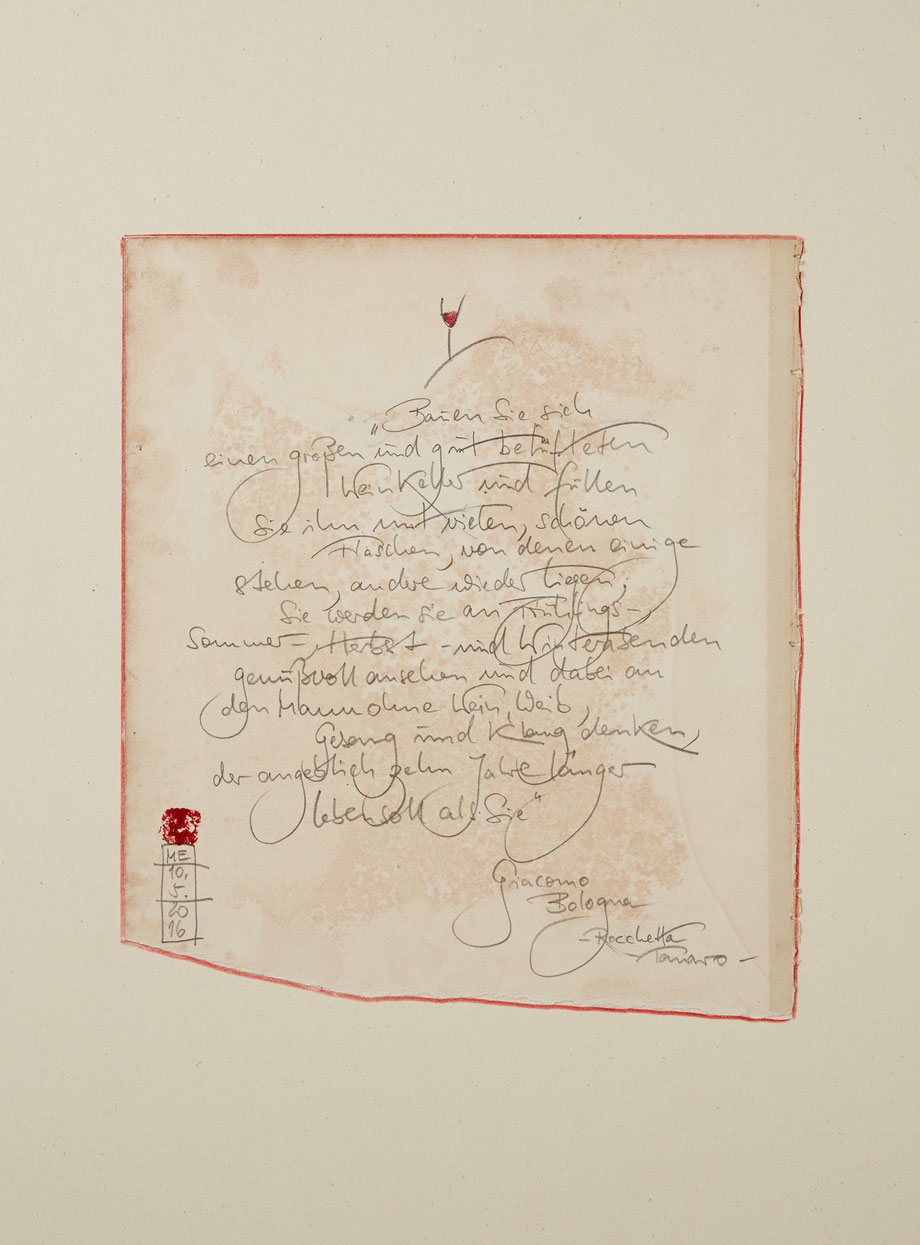 „Bauen Sie sich
einen großen und gut belüfteten
Weinkeller und füllen
Sie ihn mit vielen, schönen
Flaschen, von denen einige
stehen, andere wieder liegen;
Sie werden sie an Frühlings-,
Sommer-, Herbst- und Winterabenden
genußvoll ansehen und dabei an
den Mann ohne Wein, Weib,
Gesang und Klang denken,
der angeblich zehn Jahre länger
leben soll als Sie"
Giacomo
Bologna
- Rocchetta
Tanaro -
ME
10.
5.
20
16